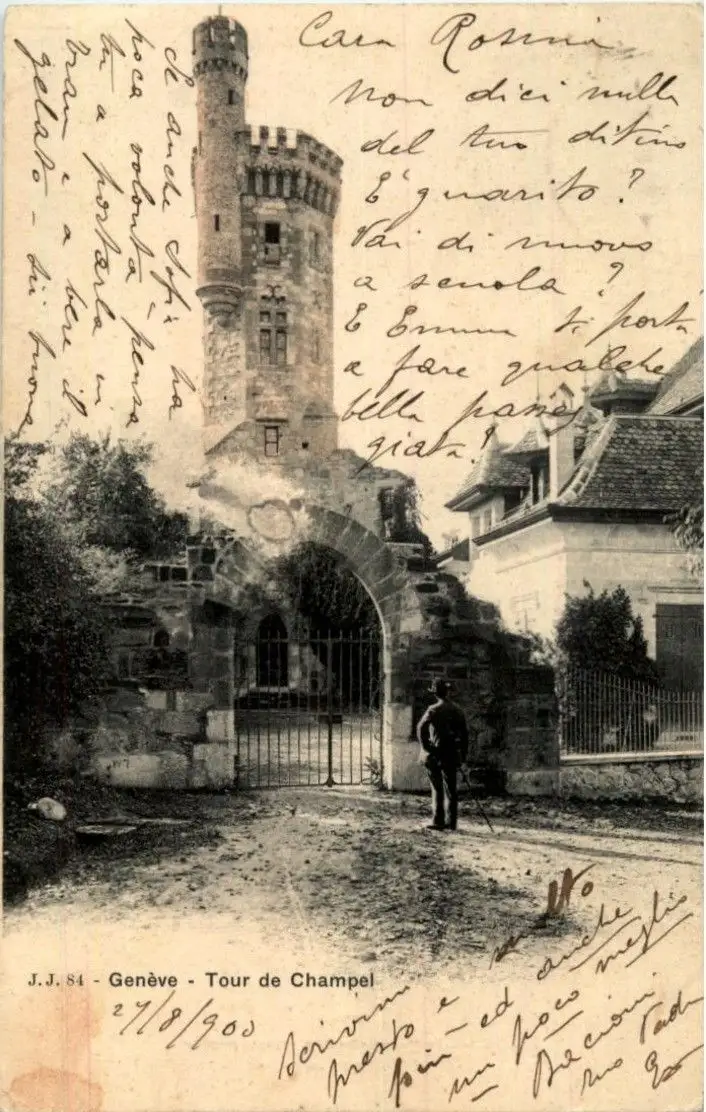 Cara Rosina
Non dici nulla
del tuo ditino
E' guarito?
Vai di nuovo
a scuola?
E Emma ti porta
a fare qualche
bella passeg
giata?
Se anche Sofia ha
poca volontà pensa
tu a portarla in
tram e a bere il
gelato - sii buona
J.J. 84 - Genève - Tour de Champel
27/8/900
Scrivimi
presto e molto
più - ed anche
un poco meglio
Bacioni
tuo Padre